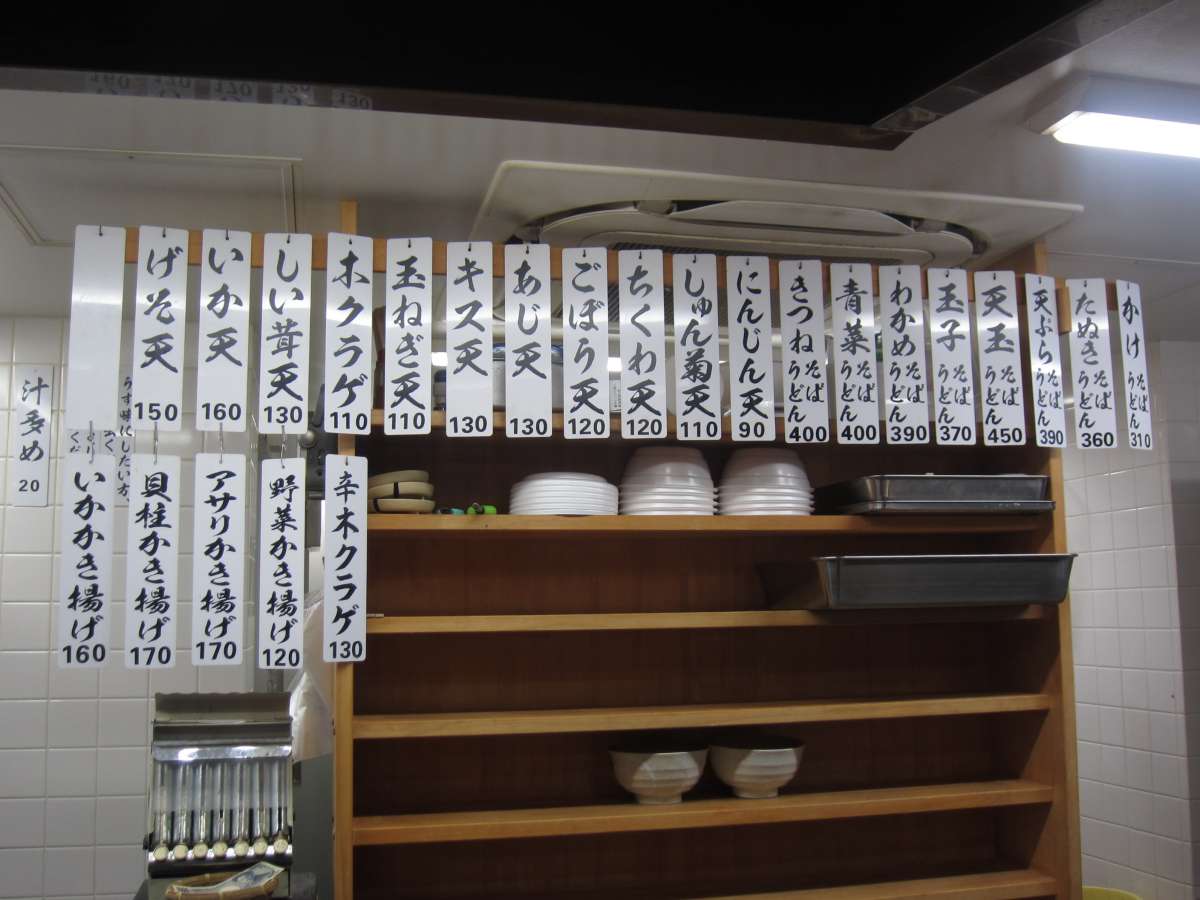 かけ
うどん
310
たぬき
そば
うどん
360
天ぷら
うどん
390
天玉
そば
うどん
450
玉子
そば
うどん
370
わかめ
そば
うどん
390
青菜
そば
うどん
400
きつね
そば
うどん
400
にんじん天
90
しゅん菊天
110
ちくわ天
120
ごぼう天
120
あじ天
130
キス天
130
玉ねぎ天
110
木クラゲ
110
しい茸天
130
いか天
160
げそ天
150
辛木クラゲ
130
野菜かき揚げ
120
アサリかき揚げ
170
貝柱かき揚げ
170
いかかき揚げ
160
うす味にしたい方、
汁多め
20